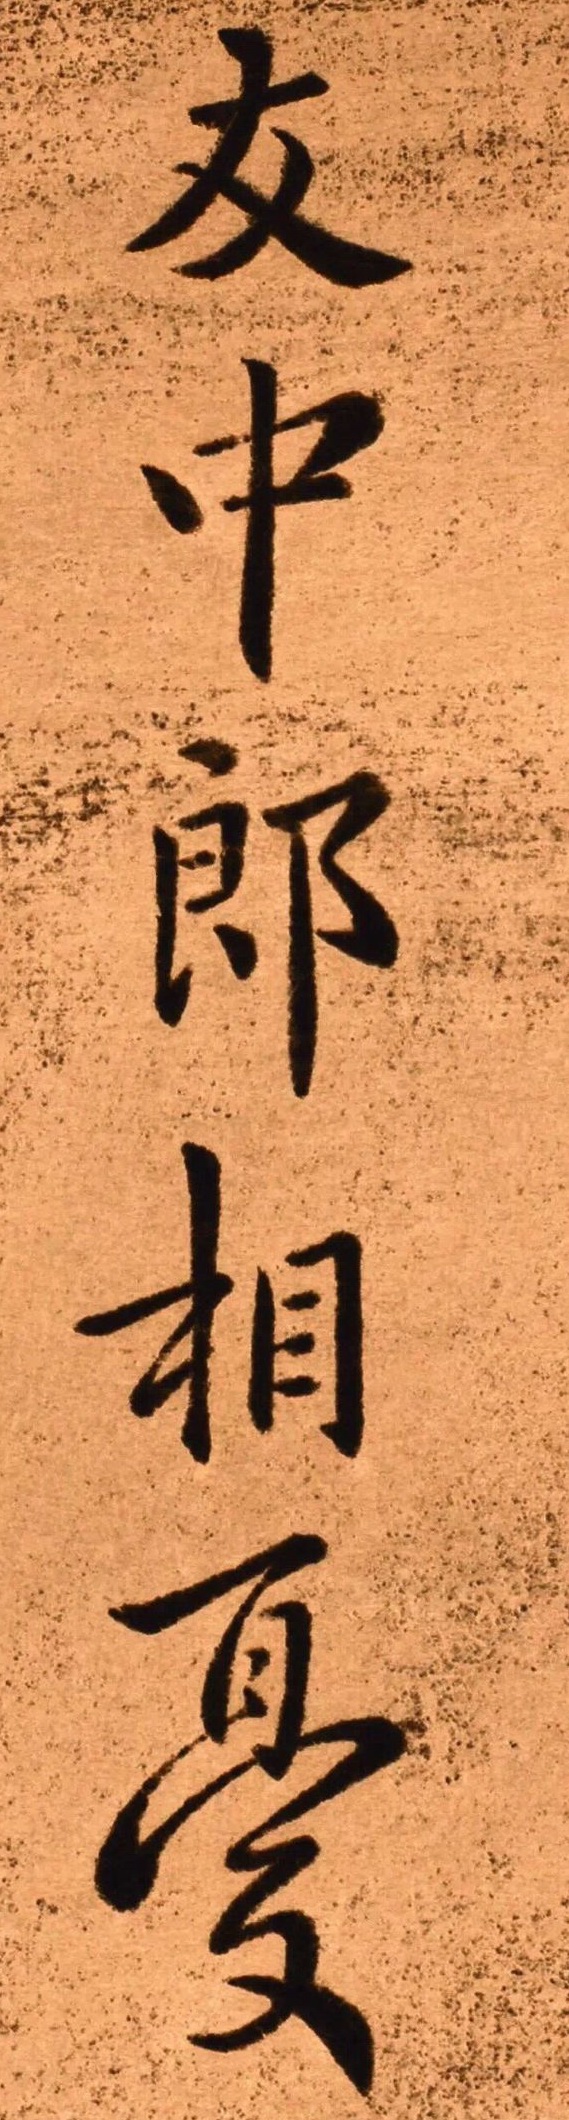 友中郎相憂